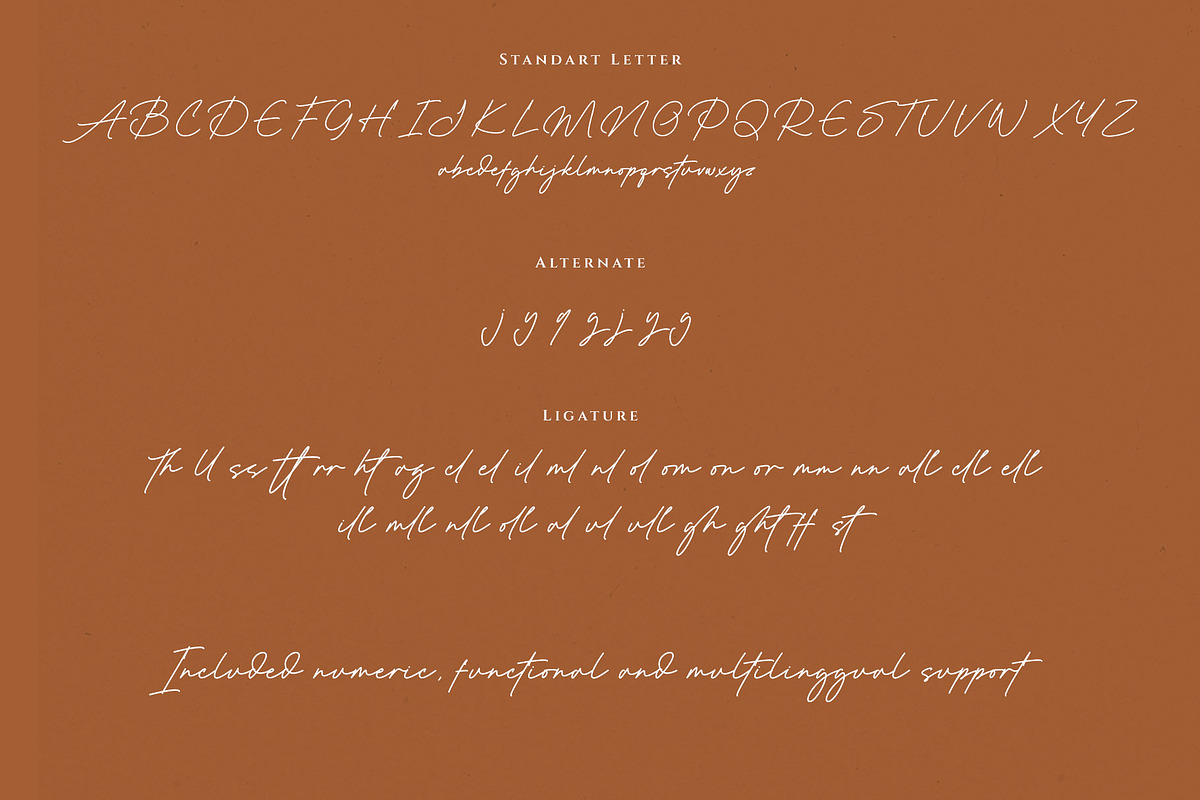 Standart Letter
ABCDEFGHIJKLMNOPQRESTUVW XYZ
abcdefghijklmnopqrstuvwxyz
Alternate
j y g g j y g
Ligature
Th ll ss tt rr ht og cl el il ml nl ol om on or mm nn all cll ell
ill mll nll oll al ul ull gh ght ff st
Included numeric, functional and multilinggual support